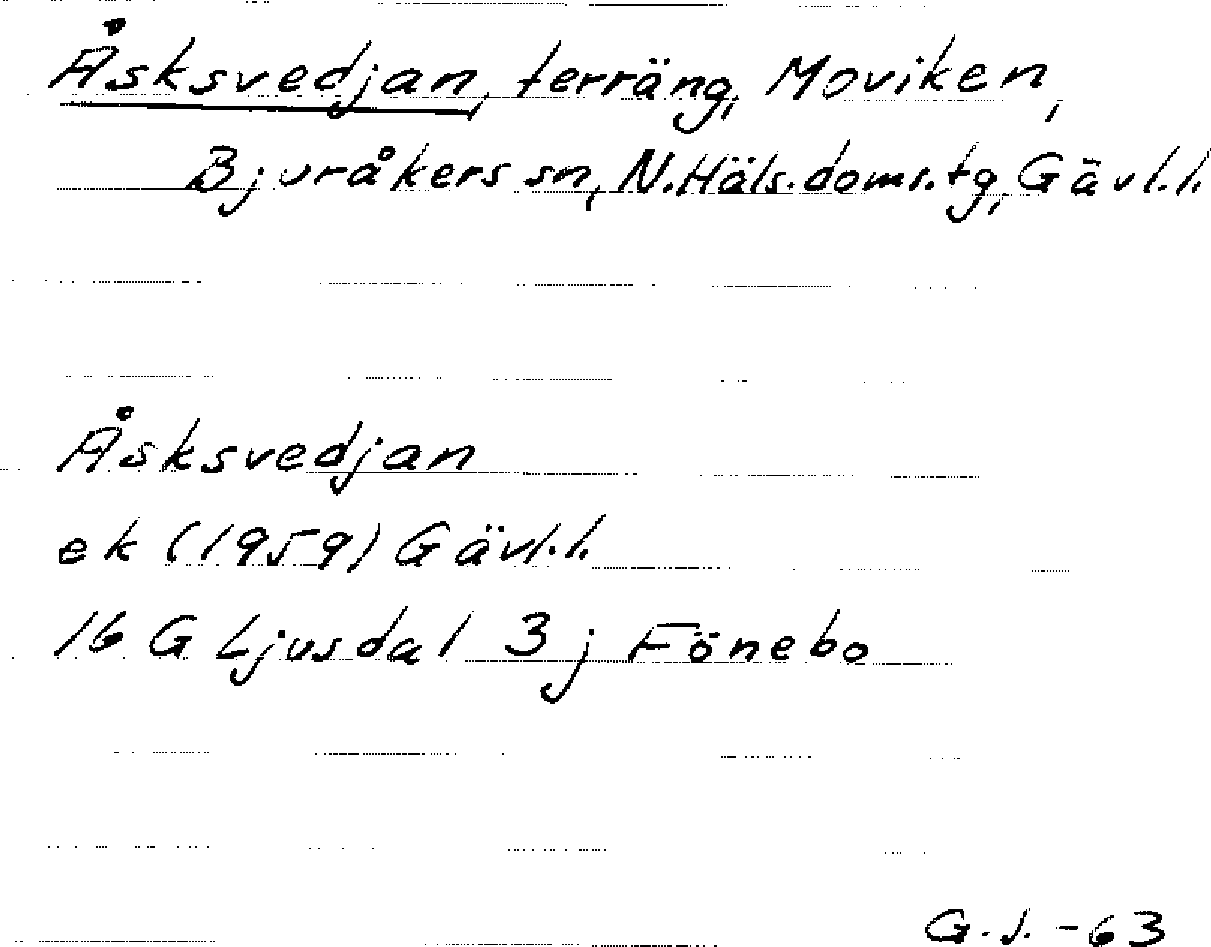 Åsksvedjan, terräng, Moviken,
Bjuråkers sn, N.Häls.doms.tg, Gävl.l.
Åsksvedjan
ek (1959) Gävl.l.
16 G Ljusdal 3 j Fönebo
G.J. -63